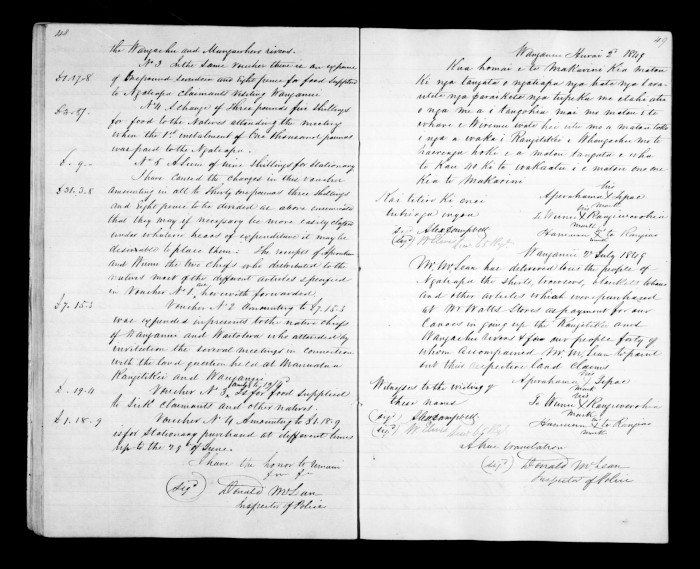 48
the Wangaehu and Mungawhero rivers.
£1.17.8 No 3 In the same Voucher there is an expense
of One pound seventeen and Eight pence for food Supplied
to Ngatiapa Claimants visiting Wanganui
£3.5/. No 4 A charge of three pounds five Shillings
for food to the Natives attending the meeting
when the 1st instalment of One thousand pounds
was paid to the Ngatiapa.
£ . 9 . No 5 A Sum of nine Shillings for Stationary
I have caused the charges in this voucher
£31.3.8 amounting in all to thirty one pounds three shillings
and Eight pence to be divided as above enumerated
that they may if necessary be more easily classed
under whatever heads of expenditure it may be
desirable to place them. The receipt of Aperahama
and Wirimu the two chiefs who distributed to the
natives most of the different articles specified
in Voucher No 1 are herewith forwarded.
£7.15.3 Voucher No 2 Amounting to £7.15.3
was expended in presents to the native chiefs
of Wanganui and Waitotara who attended by
invitation the several meetings in connection
with the land question held at Manawatu
Rangitikei and Wanganui
£ . 19.4 Voucher No 3, is for food Supplied
to Sick claimants and other natives.
£1.18.9 Voucher No 4 Amounting to £1.18.9
is for Stationary purchased at different times
up to the 29th of June.
I have the honor to remain
(Sigd) Donald McLean
Inspector of Police
49
Wanganui Hurai 2d 1849
Kua homai e te Makarini kia matou
ki nga tangata o Ngatiapa nga hate nga tara-
utete nga paraikete nga tupeka me etahi atu
o nga mea a i tangohia mai me matou i te
whare o Wiremu
a waka i Rangitikei i Whangaehu me te
haerenga hoki o a matou tangata e wha
te kau 40 ki te
kia te Makarini
his
Aperahama X Tipae
mark
his
Te Wirimu X Rangiwerohia
mark
Hamuera X te Rangiao
mark
Kai titiro ki enei
tuhinga ingoa
Sigd Alex Campbell
(Sigd) W Lewis 65 Regt.
Wanganui 2d July 1849
Mr McLean has delivered to us the people of
Ngatiapa the Shirts, trowsers, blankets tobacco
and other articles which were purchased
at Mr Watts Stores as payment for our
Canoes in going up the Rangitikei and
Wangaehu rivers & for our people forty of
whom accompanied Mr McLean to point
out their respective land claims
his
Aperahama X Tipae
mark
his
Te Wirimu X Rangiwerohia
mark
Hamuera X te Rangiao
mark
Witnesses to the writing of
these names
(Sigd) Alex Campbell.
(Sigd) W Lewis 65 Regt.
A true translation
(Sigd) Donald McLean
Inspector of Police